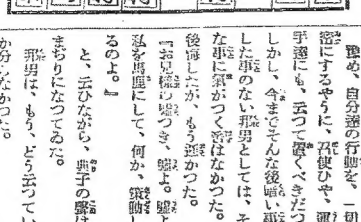 豫め、自分達の行動を、一
密にするやうに、召使ひや、運
手達にも、云つて置くべきだつ
しかし、今までそんな後暗い
した事のない邦男としては、そ
な事に氣がつく筈はなかつた。
後悔したが、もう遲かつた。
『お兄樣の嘘つき、嘘よ。嘘よ
私を馬鹿にして、何か、策動し
るのよ。』
と、云ひながら、典子の聲は
まぢりになつてゐた。
邦男は、もう、どう云つてい
か分らなかつた。